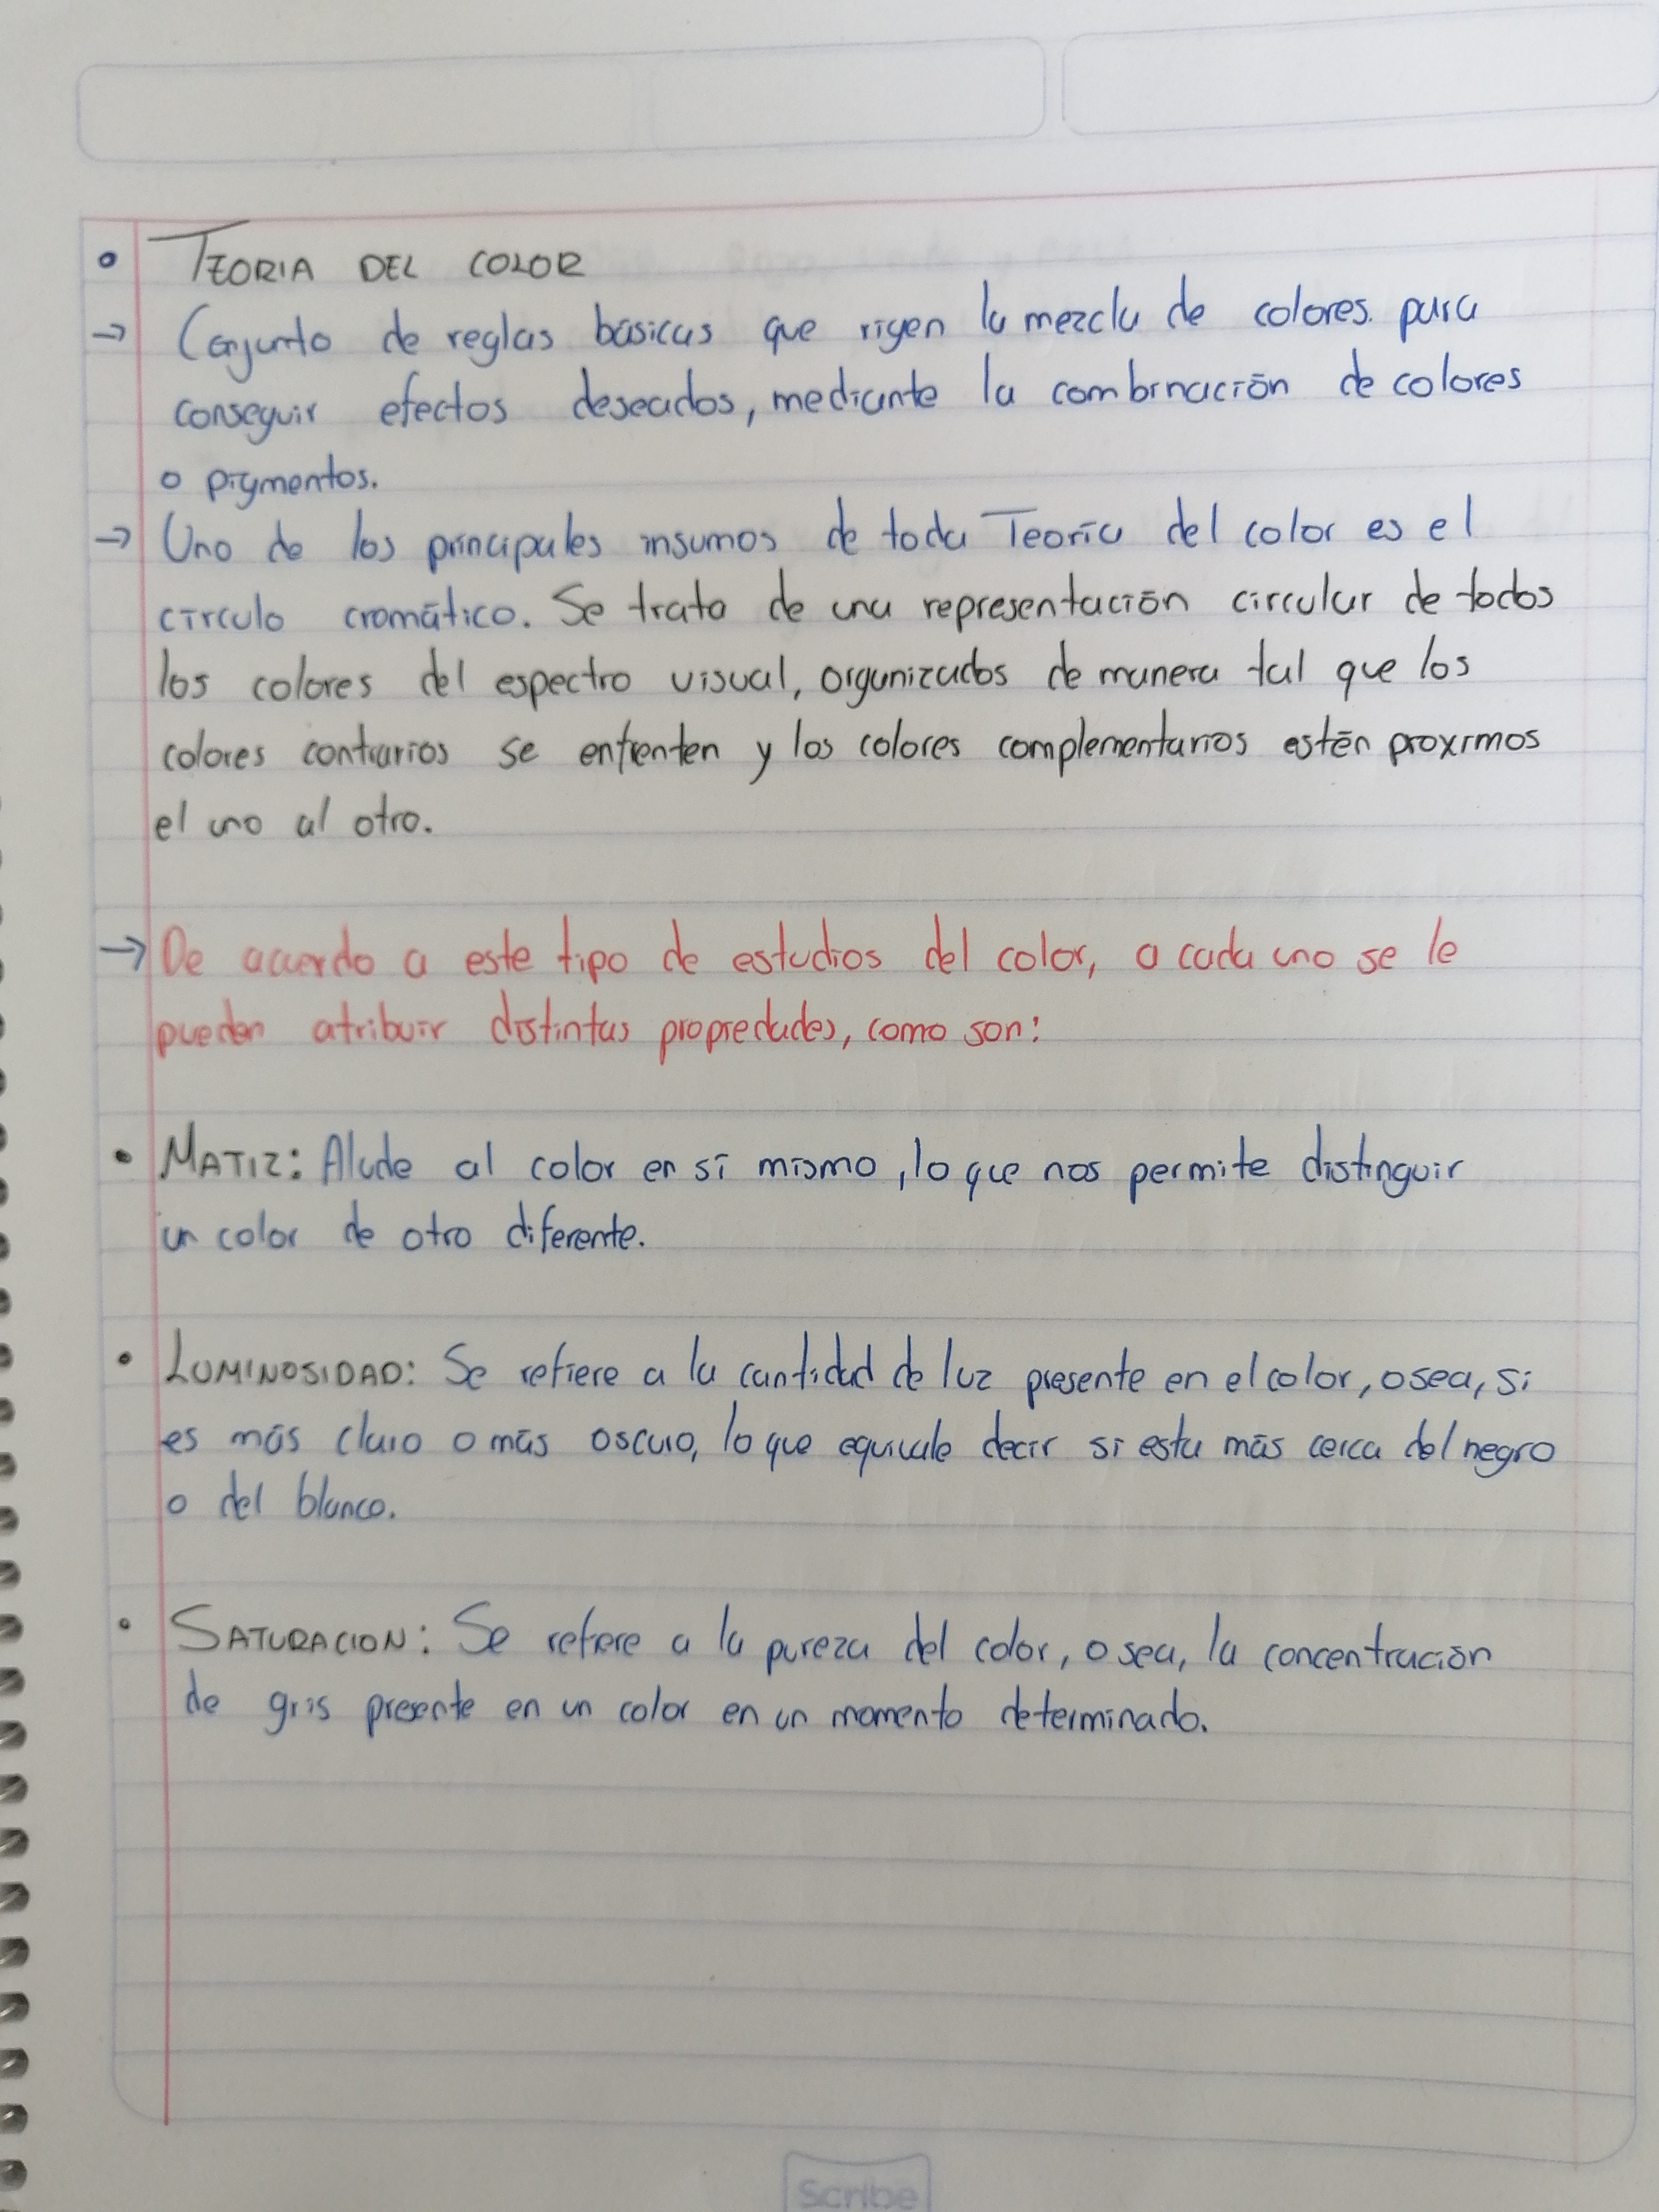 ° TEORIA DEL COLOR
→ Conjunto de reglas básicas que rigen la mezcla de colores. para
conseguir efectos deseados, mediante la combinación de colores
o pigmentos.
→ Uno de los principales insumos de toda Teoría del color es el
círculo cromático. Se trata de una representación circular de todos
los colores del espectro visual, organizados de manera tal que los
colores contrarios se enfrenten y los colores complementarios estén proximos
el uno al otro.
→ De acuerdo a este tipo de estudios del color, a cada uno se le
pueden atribuir distintas propiedades, como son:
• MATIZ: Alude al color en sí mismo, lo que nos permite distinguir
un color de otro diferente.
• LUMINOSIDAD: Se refiere a la cantidad de luz presente en el color, osea, si
es más claro o más oscuro, lo que equivale decir si esta más cerca del negro
o del blanco.
• SATURACION: Se refiere a la pureza del color, o sea, la concentración
de gris presente en un color en un momento determinado.
Scribe